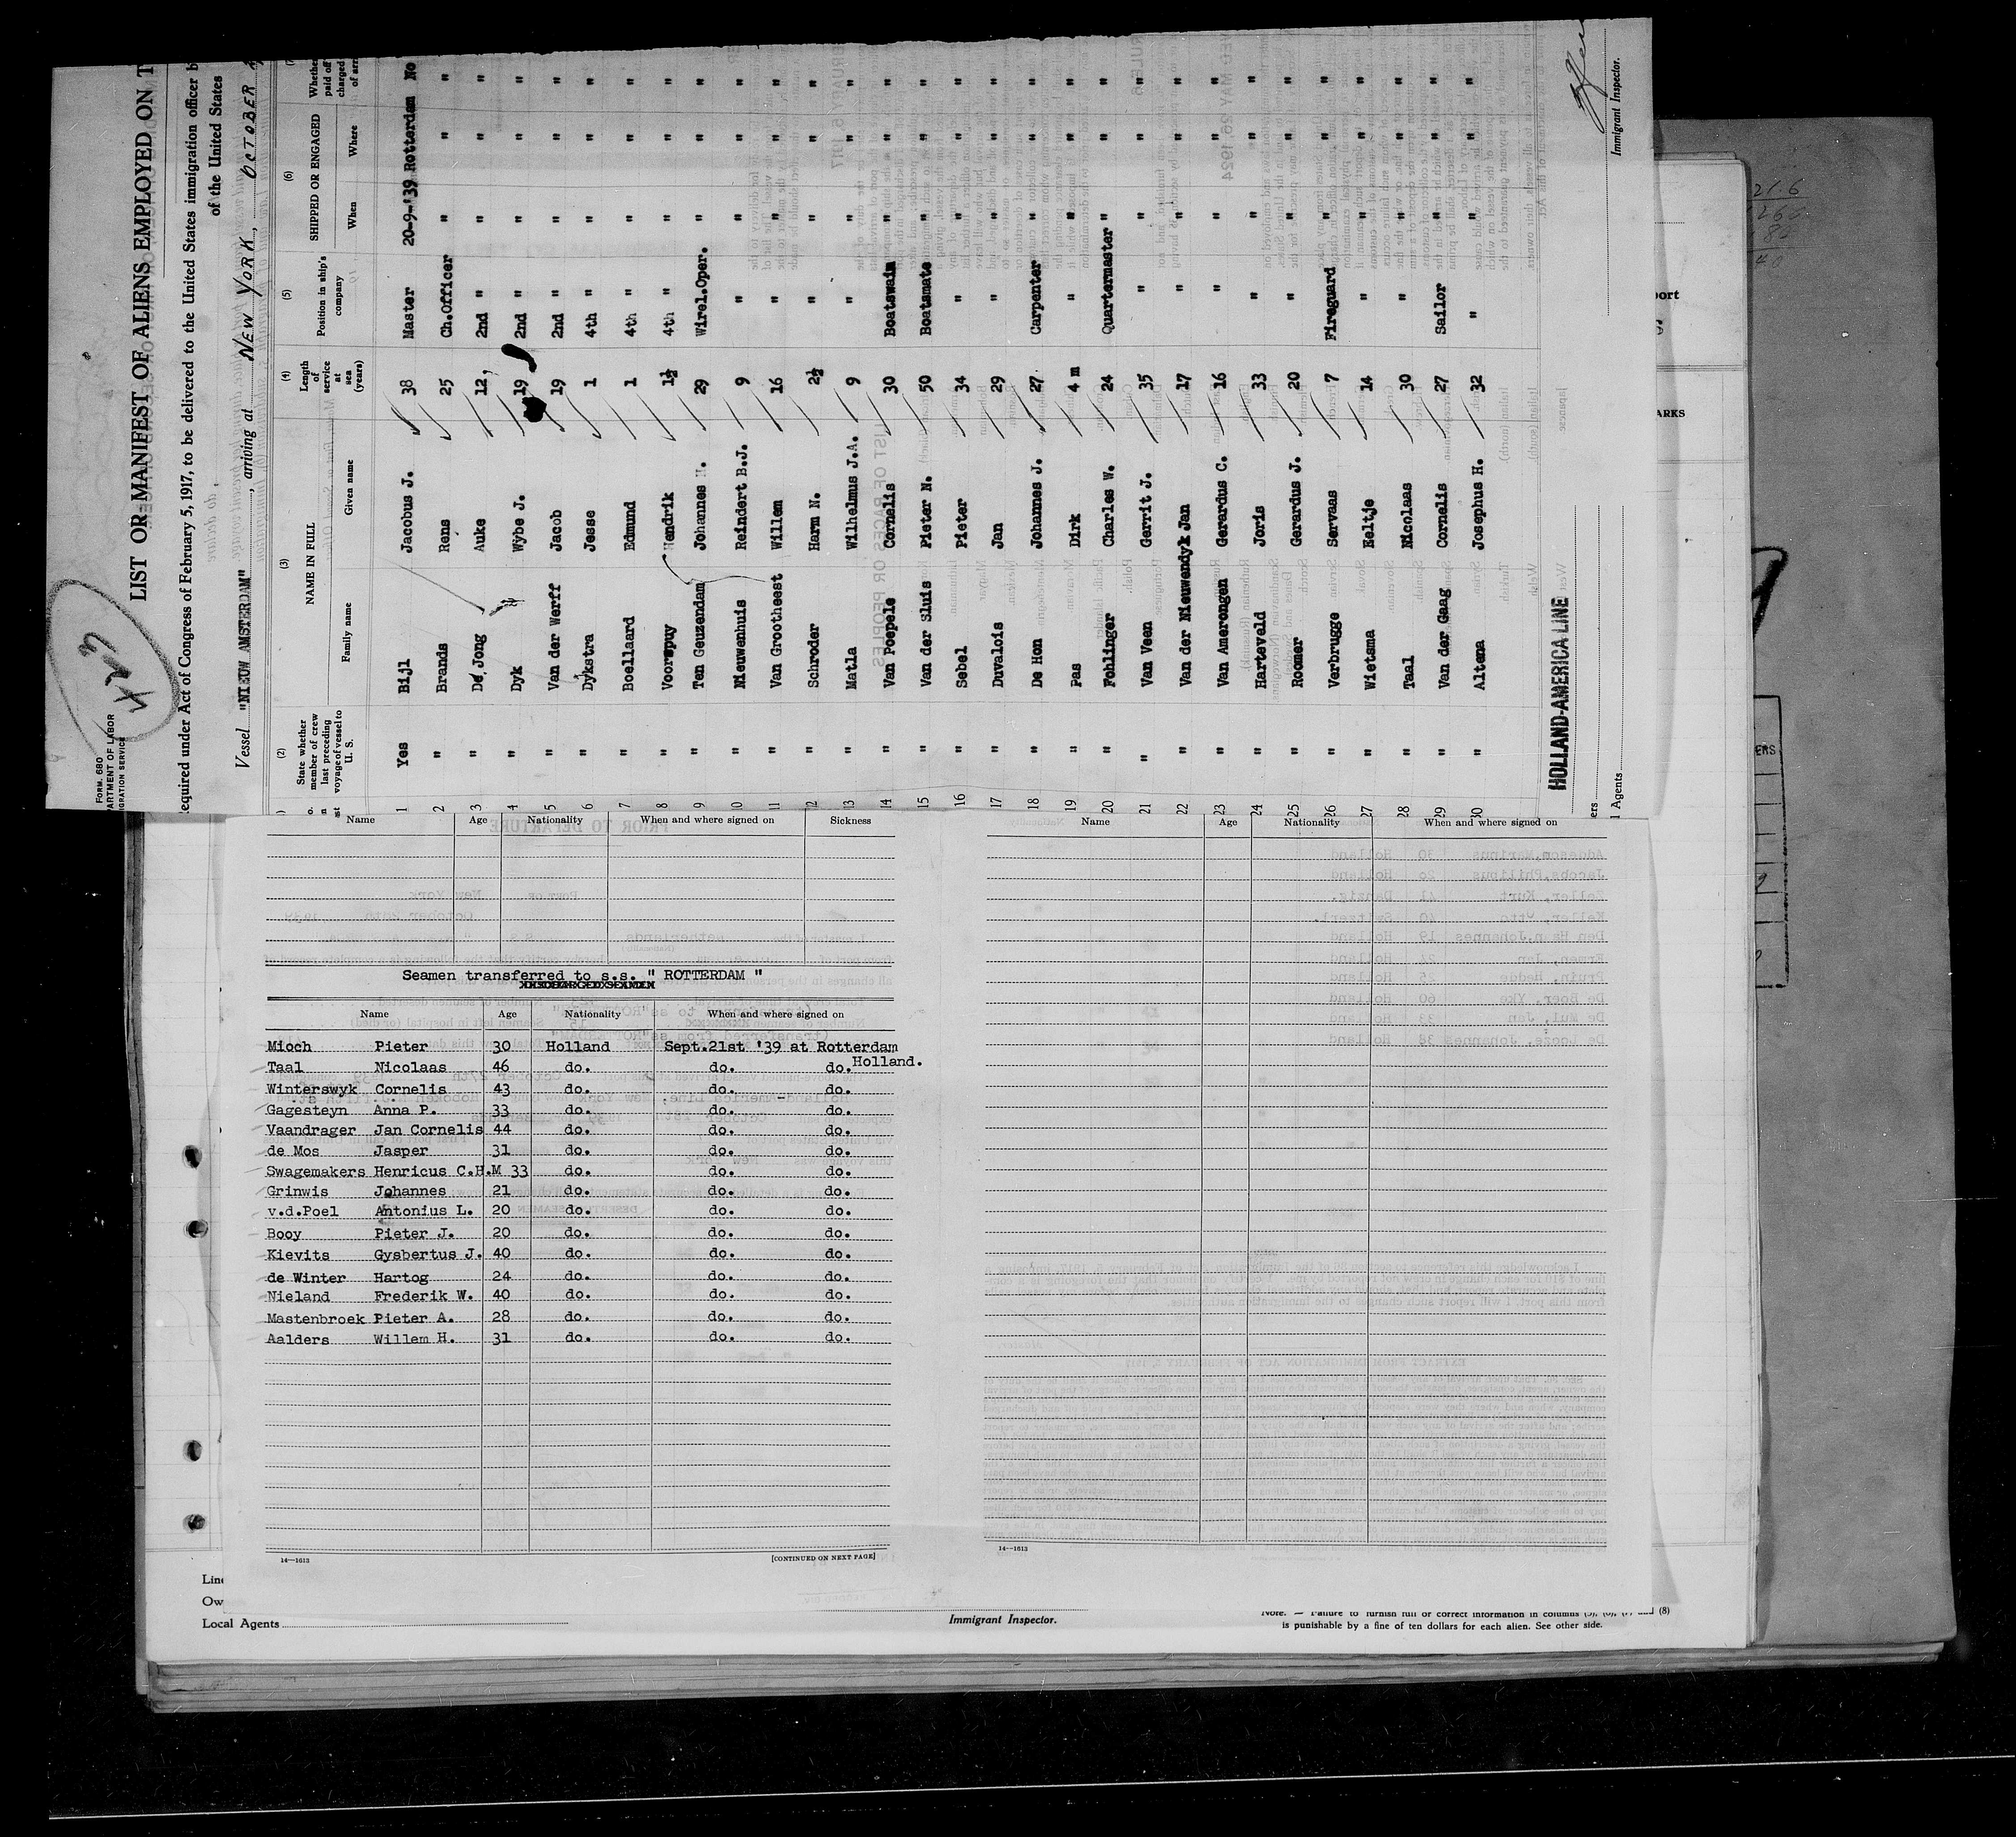 FORM 680
LIST OR MANIFEST OF ALIENS EMPLOYED ON
equired under Act of Congress of February 5, 1917, to be delivered to the United States immigration officer
of the United States
Vessel "NIEUW AMSTERDAM", arriving at NEW YORK, OCTOBER
(2) (3) (4) (5) (6)
State whether member of crew last preceding voyage of vessel to U. S. NAME IN FULL Length of service at sea (years) Position in ship's company SHIPPED OR ENGAGED
Family name Given name When Where
1 Yes Bijl Jacobus J. 38 Master 20-9-'39 Rotterdam No
2 " Brands Rens 25 Ch.Officer " " "
3 " De Jong Auke 12 2nd " " " "
4 " Dyk Wybe J. 19 2nd " " " "
5 " Van der Werff Jacob 19 2nd " " " "
6 " Dykstra Jesse 1 4th " " " "
7 " Boellaard Edmund 1 4th " " " "
8 " Voorspuy Hendrik 1½ 4th " " " "
9 " Ten Geuzendam Johannes H. 29 Wirel.Oper. " " "
10 " Nieuwenhuis Reindert B.J. 9 " " " "
11 " Van Grootheest Willem 16 " " " "
12 " Schroder Harm N. 2½ " " " "
13 " Matla Wilhelmus J.A. 9 " " " "
14 " Van Poepele Cornelis 30 Boatswain " " "
15 " Van der Sluis Pieter N. 50 Boatsmate " " "
16 " Sebel Pieter 34 " " " "
17 " Duvalois Jan 29 " " " "
18 " De Hon Johannes J. 27 Carpenter " " "
19 " Pas Dirk 4 m " " " "
20 " Fohlinger Charles W. 24 Quartermaster " " "
21 " Van Veen Gerrit J. 35 " " " "
22 " Van der Nieuwendyk Jan 17 " " " "
23 " Van Amerongen Gerardus C. 16 " " " "
24 " Harteveld Joris 33 " " " "
25 " Roomer Gerardus J. 20 " " " "
26 " Verbrugge Servaas 7 Fireguard " " "
27 " Wietsma Eeltje 14 " " " "
28 " Taal Nicolaas 30 " " " "
29 " Van der Gaag Cornelis 27 Sailor " " "
30 " Altena Josephus H. 32 " " " "
HOLLAND-AMERICA LINE
Immigrant Inspector.
Name Age Nationality When and where signed on Sickness
Name Age Nationality When and where signed on
Seamen transferred to s.s. " ROTTERDAM "
Name Age Nationality When and where signed on
Mioch Pieter 30 Holland Sept.21st '39 at Rotterdam
Holland.
Taal Nicolaas 46 do. do. do.
Winterswyk Cornelis 43 do. do. do.
Gagesteyn Anna P. 33 do. do. do.
Vaandrager Jan Cornelis 44 do. do. do.
de Mos Jasper 31 do. do. do.
Swagemakers Henricus C.H.M 33 do. do. do.
Grinwis Johannes 21 do. do. do.
v.d.Poel Antonius L. 20 do. do. do.
Booy Pieter J. 20 do. do. do.
Kievits Gysbertus J. 40 do. do. do.
de Winter Hartog 24 do. do. do.
Nieland Frederik W. 40 do. do. do.
Mastenbroek Pieter A. 28 do. do. do.
Aalders Willem H. 31 do. do. do.
14—1613 [CONTINUED ON NEXT PAGE]
14—1613
Local Agents
Immigrant Inspector.
Note. — Failure to furnish full or correct information in columns (5), (6), (7) and (8)
is punishable by a fine of ten dollars for each alien. See other side.